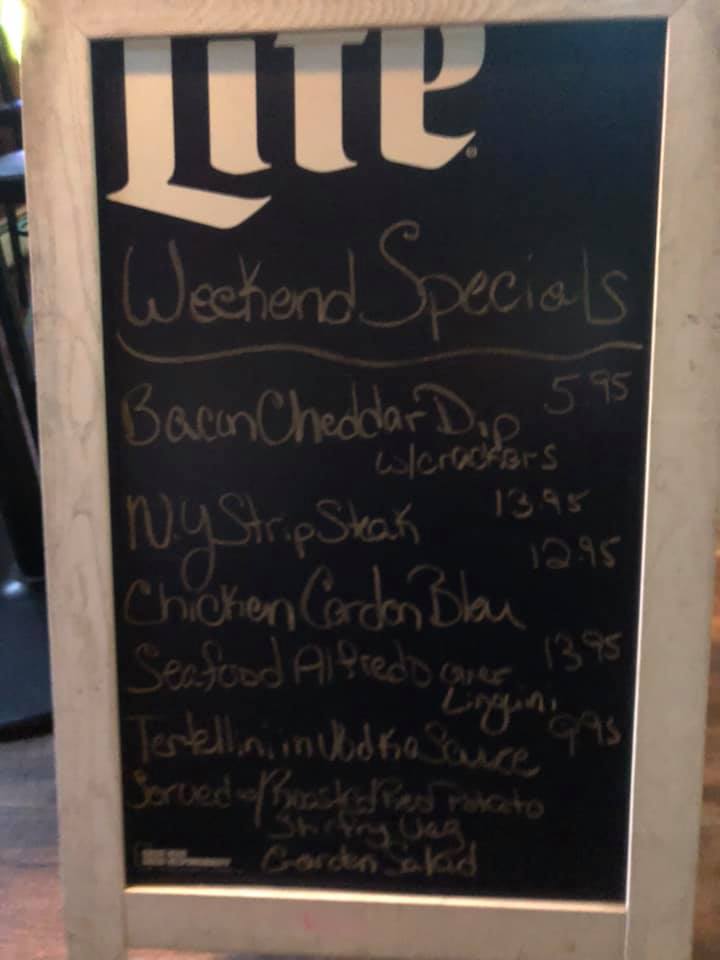 Lite
Weekend Specials
Bacon Cheddar Dip 5.95
w/crackers
N.Y Strip Steak 13.95
12.95
Chicken Cordon Bleu
Seafood Alfredo over 13.95
Linguini
Tortellini in Vodka Sauce 9.95
Served w/Roasted Red Potato
Stir fry Veg
Garden Salad